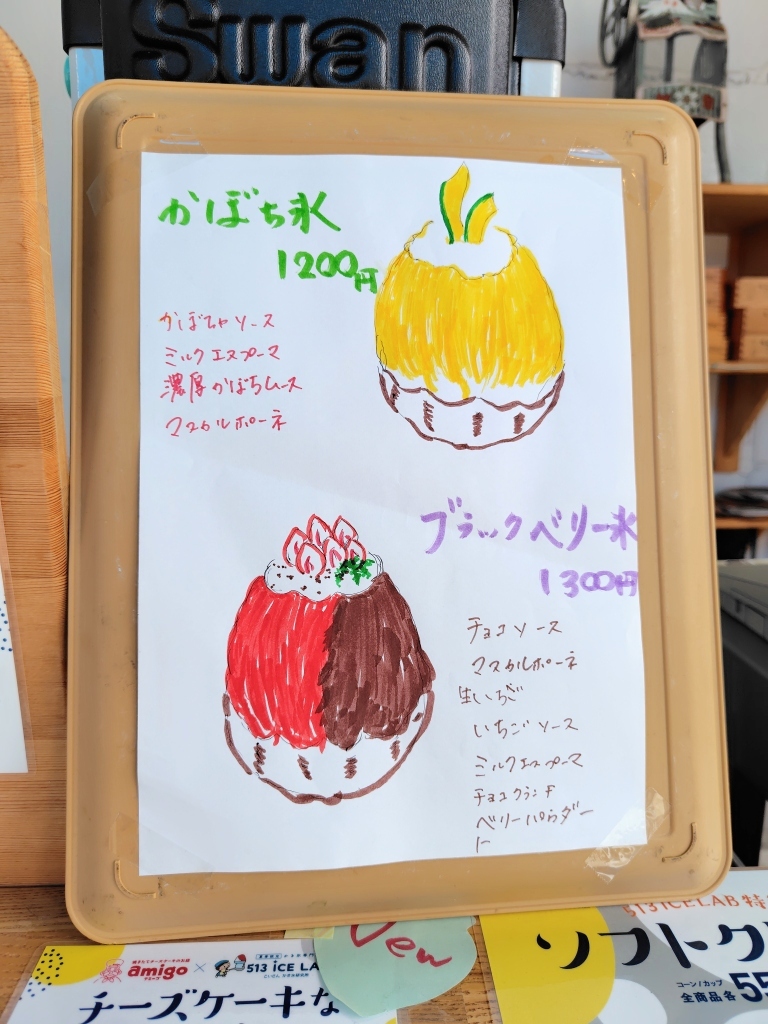 Swan
かぼちゃ氷
1200円
かぼちゃソース
ミルクエスプーマ
濃厚かぼちゃムース
マスカルポーネ
ブラックベリー氷
1300円
チョコソース
マスカルポーネ
生いちご
いちごソース
ミルクエスプーマ
チョコクランチ
ベリーパウダー
New
amigo × 513 ICE LA
チーズケーキな
513 ICE LAB 特
ソフトク
コーン/カップ
全商品各55